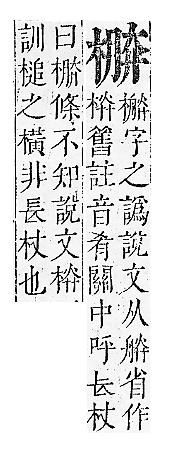 㮳
字之譌說文从省作
栚舊註音肴關中呼長杖
曰㮳條不知說文栚
訓槌之橫非長杖也